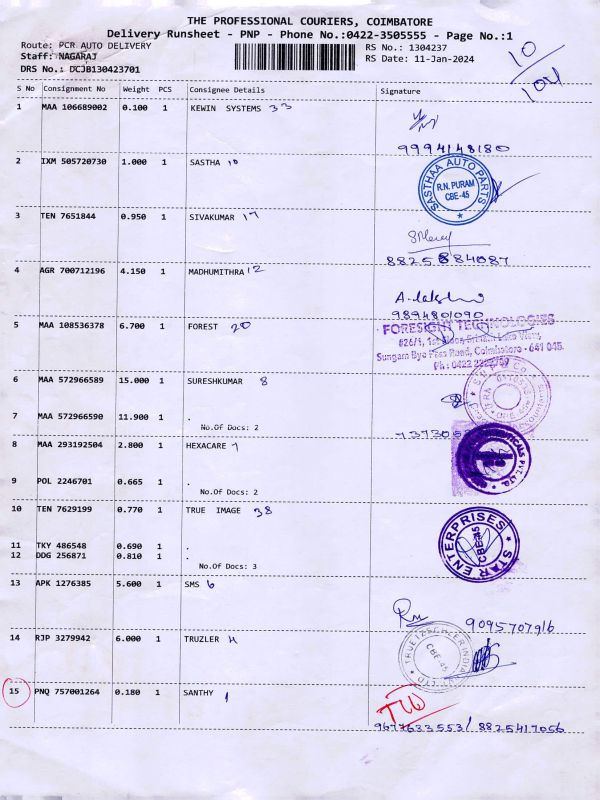 THE PROFESSIONAL COURIERS, COIMBATORE
Delivery Runsheet - PNP - Phone No.:0422-3505555 - Page No.:1
Route: PCR AUTO DELIVERY
RS No.: 1304237
Staff: NAGARAJ
RS Date: 11-Jan-2024
DRS No.: DCJB130423701
10/104
S No Consignment No Weight PCS Consignee Details Signature
1 MAA 106689002 0.100 1 KEWIN SYSTEMS 33
9994148180
2 IXM 505720730 1.000 1 SASTHA 10
SASTHAA AUTO PARTS
R.N. PURAM
CBE-45
3 TEN 7651844 0.950 1 SIVAKUMAR 17
8825884087
4 AGR 700712196 4.150 1 MADHUMITHRA 12
9894801090
5 MAA 108536378 6.700 1 FOREST 20
FORESIGHT TECHNOLOGIES
Sungam Bye Pass Road, Coimbatore - 641 045.
6 MAA 572966589 15.000 1 SURESHKUMAR 8
7 MAA 572966590 11.900 1 .
No.Of Docs: 2
8 MAA 293192504 2.800 1 HEXACARE 7
9 POL 2246701 0.665 1 .
No.Of Docs: 2
10 TEN 7629199 0.770 1 TRUE IMAGE 38
STAR ENTERPRISES
CBE-45
11 TKY 486548 0.690 1 .
12 DDG 256871 0.810 1 .
No.Of Docs: 3
13 APK 1276385 5.600 1 SMS 6
9095707916
14 RJP 3279942 6.000 1 TRUZLER 4
CBE-45
15 PNQ 757001264 0.180 1 SANTHY 1
9677633553/ 8825417056